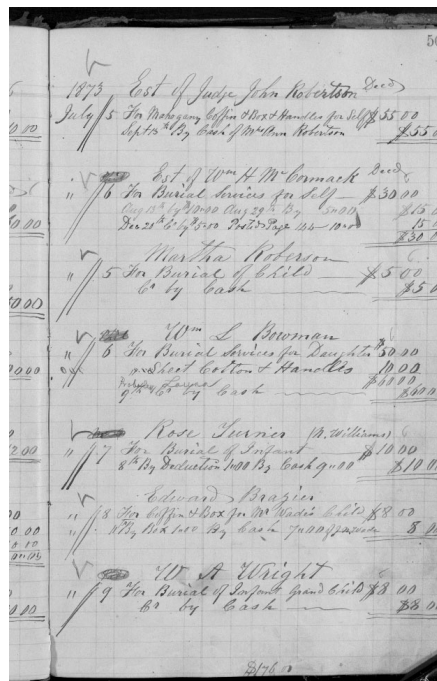 50
1873 Est of Judge John Robertson Decd
July 5 For Mahogany Coffin & Box & Handles for Self $55 00
Sept 18th By Cash of Mrs Ann Robertson $55 0
Est of Wm H McCormack Decd
" 6 For Burial Services for Self $30 00
Aug 12th by 10.00 Aug 29th By 5.00 $15 0
Dec 20th Posted Page 144 15
$30 0
Martha Roberson
" 5 For Burial of Child $5 00
Cr by Cash $5 0
Wm L Bowman
" 6 For Burial Services for Daughter $50.00
Sheet Cotton & Handles 10.00
$60.00
9th Cr by Cash $60 0
Rose Turner (R. Williams)
" 7 For Burial of Infant $10.00
8th By Deduction 1.00 By Cash 9.00 $10.0
Edward Brazier
" 8 For Coffin & Box for Mr Wade's Child $8.00
By Box 1.00 By Cash 7.00 8 0
W A Wright
" 9 For Burial of Infant Grand Child $8 00
Cr by Cash $8 0
$176.00